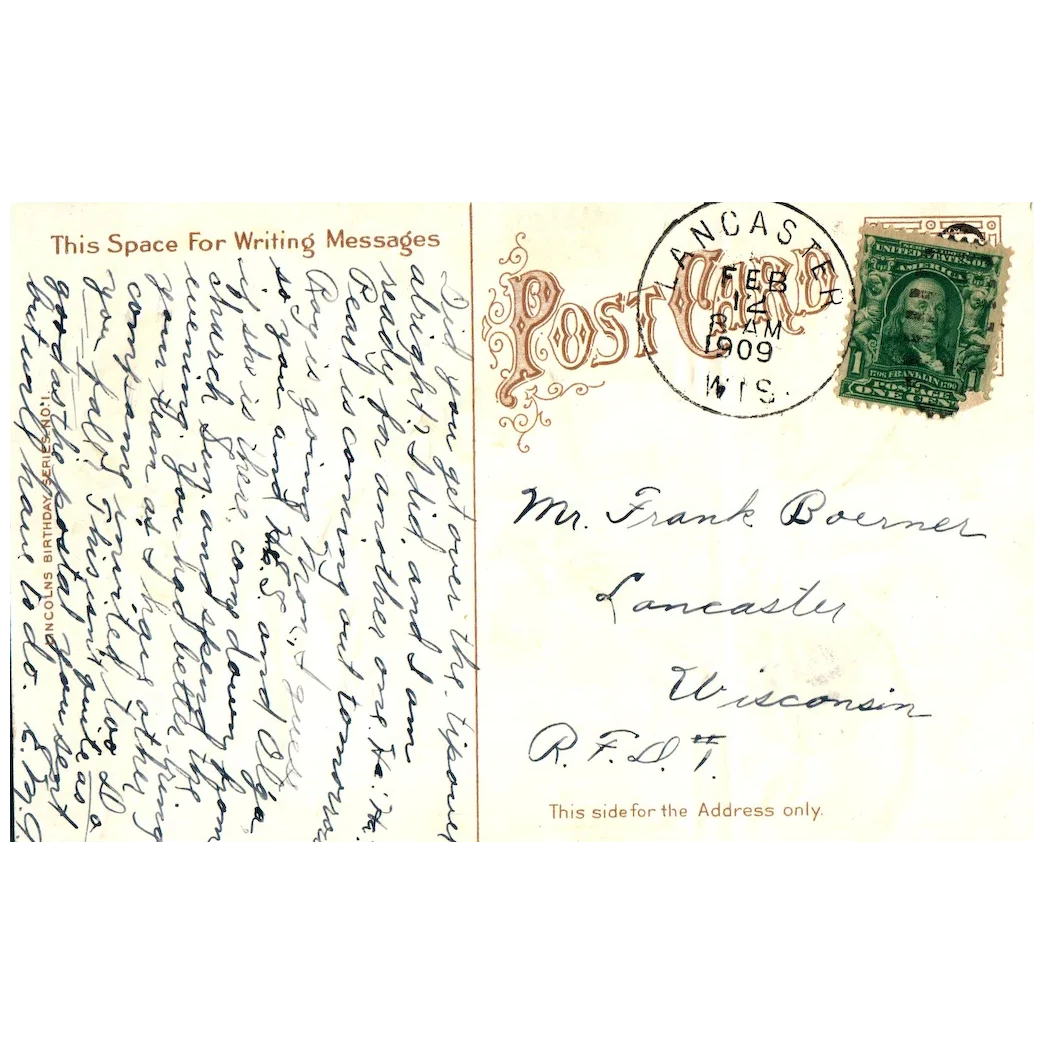 This Space For Writing Messages
Did you get over the tipover
alright? I did and I am
ready for another one. Ha. Ha.
Beat is coming out tomorrow
Roy is going Mon., I guess
so you and H. S. and Olga
if she is there, come down from
church Sun. and spend the
evening. You had better fix
your team as I have other
company invited too. Do
you fall? This isn't quite as
good as the postal you sent
but will have to do. E. M. G.
LINCOLNS BIRTHDAY SERIES NO. 1.
POST CARD
LANCASTER
FEB
12
8 AM
1909
WIS.
SERIES 1902
UNITED STATES OF
AMERICA
1 1
1706 FRANKLIN 1790
POSTAGE
ONE CENT
Mr. Frank Boerner
Lancaster
Wisconsin
R. F. D. #
This side for the Address only.